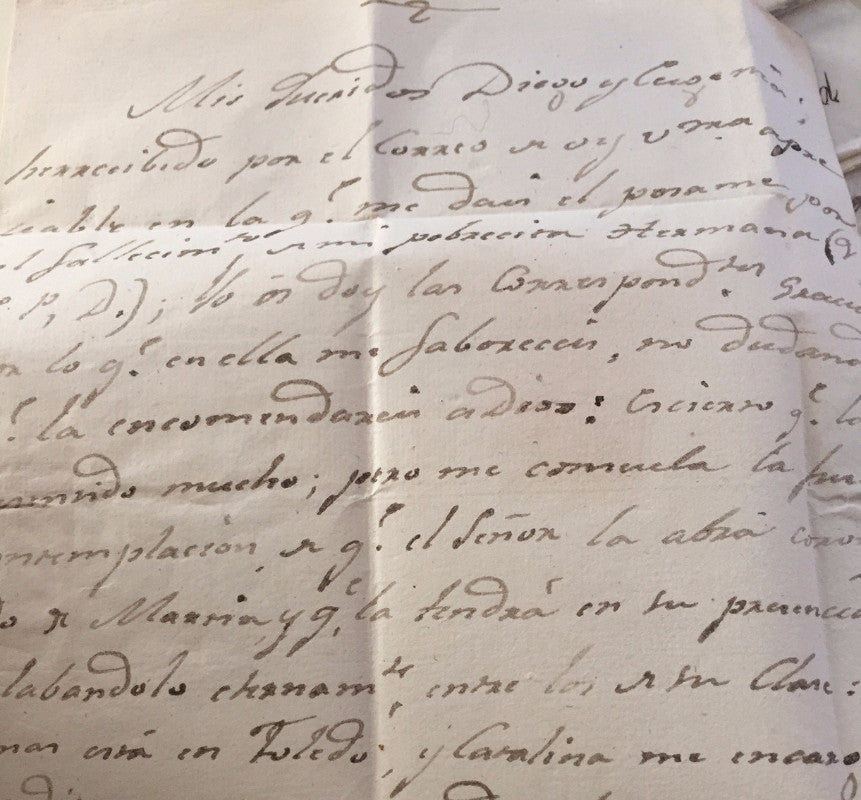 Mis queridos Diego y Eugenia:
herrecibido por el Correo de oy vra apre
ciable en la q.e me dais el pesame por
el fallecim.to de mi pobrecita Hermana (Q
e. p, D.); Yo ós doy las Correspond.tes Graci
or lo q.e en ella me faboreceis, no dudand
q.e la encomendareis a Dios: Es cierto q.e lo
sentido mucho; pero me consuela la
contemplación, de q.e el Señor la abrá coro
do de Martir, y q.e la tendrá en su presencia
labandolo eternam.te, entre los de su Clase:
mas está en Toledo, y Catalina me encarg